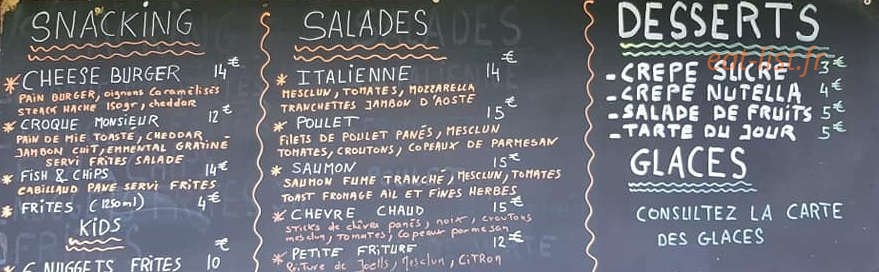 SNACKING
* CHEESE BURGER 14€
PAIN BURGER, oignons Caramélisés
STEACK HACHÉ 150gr, cheddar
* CROQUE MONSIEUR 12€
PAIN DE MIE TOASTÉ, CHEDDAR,
JAMBON CUIT, EMMENTAL GRATINÉ
SERVI FRITES SALADE
* FISH & CHIPS 14€
CABILLAUD PANÉ SERVI FRITES
* FRITES (1250ml) 4€
KIDS
6 NUGGETS FRITES 10€
SALADES
* ITALIENNE 14€
MESCLUN, TOMATES, MOZZARELLA
TRANCHETTES JAMBON D'AOSTE
* POULET 15€
FILETS DE POULET PANÉS, MESCLUN
TOMATES, CROUTONS, COPEAUX DE PARMESAN
* SAUMON 15€
SAUMON FUMÉ TRANCHÉ, MESCLUN, TOMATES
TOAST FROMAGE AIL ET FINES HERBES
* CHEVRE CHAUD 15€
STICKS de chèvre panés, noix, croutons
mesclun, TOMATES, copeaux parmesan
* PETITE FRITURE 12€
Friture de Joells, Mesclun, CITRON
DESSERTS
- CREPE SUCRE 3€
- CREPE NUTELLA 4€
- SALADE DE FRUITS 5€
- TARTE DU JOUR 5€
GLACES
CONSULTEZ LA CARTE
DES GLACES